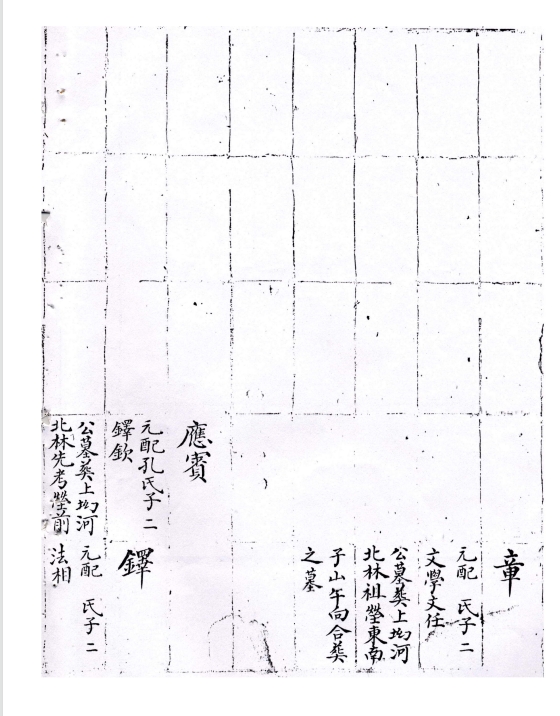 應賓
元配孔氏子二
鐸欽
公墓葬上坳河
北林先考塋前
章
元配 氏子二
文學文任
公墓葬上坳河
北林祖塋東南
子山午向合葬
之墓
鐸
元配 氏子二
法相